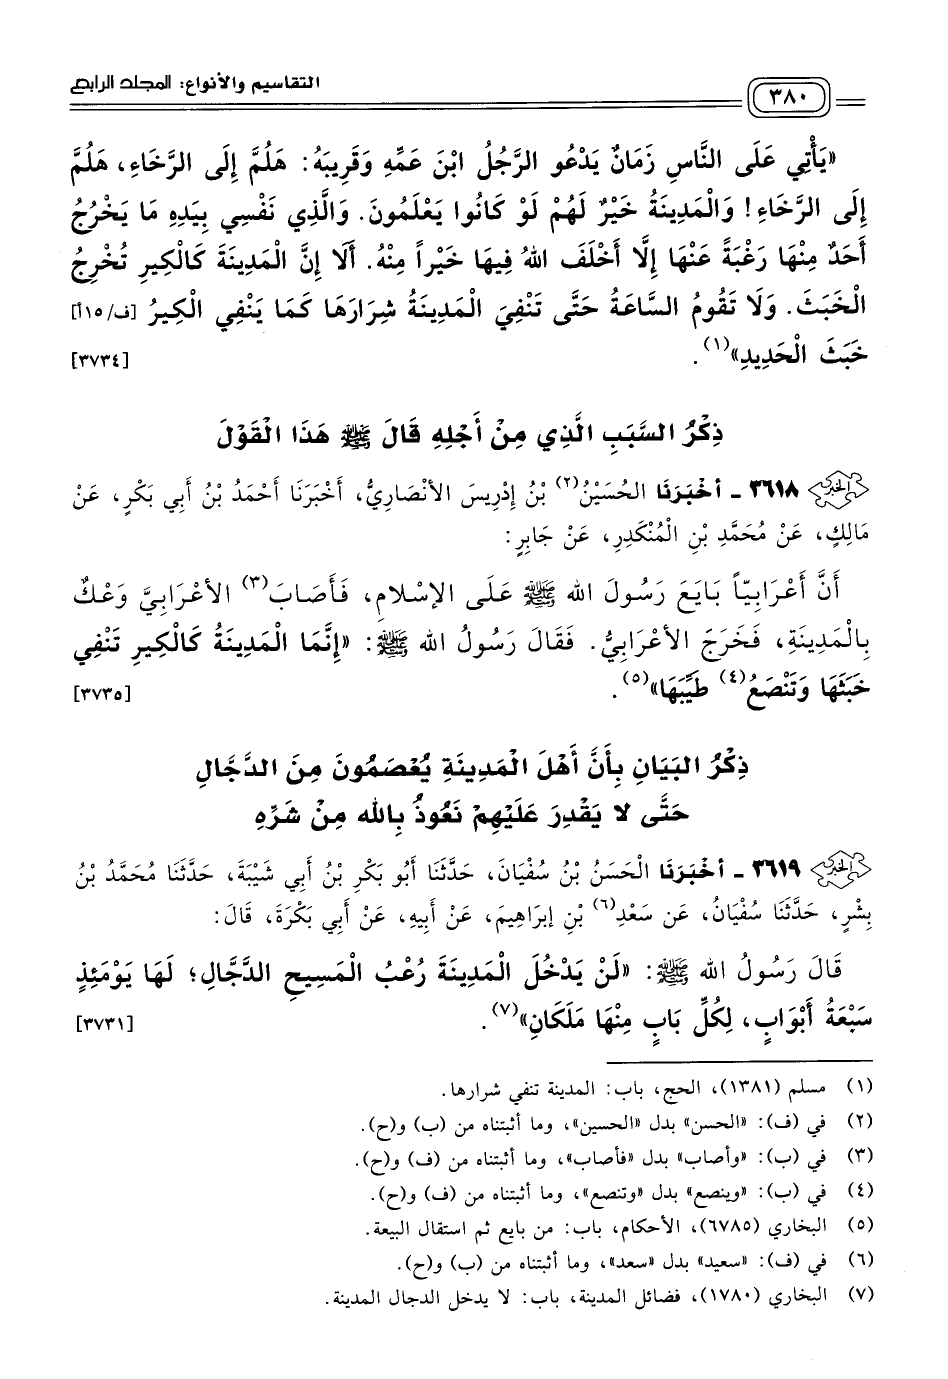 ٣٨٠
التقاسيم والأنواع: المجلد الرابع
«يَأْتِي عَلَى النَّاسِ زَمَانٌ يَدْعُو الرَّجُلُ ابْنَ عَمِّهِ وَقَرِيبَهُ: هَلُمَّ إِلَى الرَّخَاءِ، هَلُمَّ
إِلَى الرَّخَاءِ! وَالْمَدِينَةُ خَيْرٌ لَهُمْ لَوْ كَانُوا يَعْلَمُونَ. وَالَّذِي نَفْسِي بِيَدِهِ مَا يَخْرُجُ
أَحَدٌ مِنْهَا رَغْبَةً عَنْهَا إِلَّا أَخْلَفَ اللهُ فِيهَا خَيْراً مِنْهُ. أَلَا إِنَّ الْمَدِينَةَ كَالْكِيرِ تُخْرِجُ
الْخَبَثَ. وَلَا تَقُومُ السَّاعَةُ حَتَّى تَنْفِيَ الْمَدِينَةُ شِرَارَهَا كَمَا يَنْفِي الْكِيرُ [ف/١٥أ]
خَبَثَ الْحَدِيدِ»(١). [٣٧٣٤]
ذِكْرُ السَّبَبِ الَّذِي مِنْ أَجْلِهِ قَالَ ﷺ هَذَا الْقَوْلَ
٣٦١٨ - أخْبَرَنَا الحُسَيْنُ(٢) بْنُ إِدْرِيسَ الأَنْصَارِيُّ، أَخْبَرَنَا أَحْمَدُ بْنُ أَبِي بَكْرٍ، عَنْ
مَالِكٍ، عَنْ مُحَمَّدِ بْنِ الْمُنْكَدِرِ، عَنْ جَابِرٍ:
أَنَّ أَعْرَابِيّاً بَايَعَ رَسُولَ اللهِ ﷺ عَلَى الإِسْلَامِ، فَأَصَابَ(٣) الأَعْرَابِيَّ وَعْكٌ
بِالْمَدِينَةِ، فَخَرَجَ الأَعْرَابِيُّ. فَقَالَ رَسُولُ اللهِ ﷺ: «إِنَّمَا الْمَدِينَةُ كَالْكِيرِ تَنْفِي
خَبَثَهَا وَتَنْصَعُ(٤) طَيِّبَهَا»(٥). [٣٧٣٥]
ذِكْرُ البَيَانِ بِأَنَّ أَهْلَ الْمَدِينَةِ يُعْصَمُونَ مِنَ الدَّجَّالِ
حَتَّى لا يَقْدِرَ عَلَيْهِمْ نَعُوذُ بِالله مِنْ شَرِّهِ
٣٦١٩ - أخْبَرَنَا الْحَسَنُ بْنُ سُفْيَانَ، حَدَّثَنَا أَبُو بَكْرِ بْنُ أَبِي شَيْبَةَ، حَدَّثَنَا مُحَمَّدُ بْنُ
بِشْرٍ، حَدَّثَنَا سُفْيَانُ، عَن سَعْدِ(٦) بْنِ إبرَاهِيمَ، عَن أَبِيهِ، عَنْ أَبِي بَكْرَةَ، قَالَ:
قَالَ رَسُولُ اللهِ ﷺ: «لَنْ يَدْخُلَ الْمَدِينَةَ رُعْبُ الْمَسِيحِ الدَّجَّالِ؛ لَهَا يَوْمَئِذٍ
سَبْعَةُ أَبْوَابٍ، لِكُلِّ بَابٍ مِنْهَا مَلَكَانِ»(٧). [٣٧٣١]
(١) مسلم (١٣٨١)، الحج، باب: المدينة تنفي شرارها.
(٢) في (ف): «الحسن» بدل «الحسين»، وما أثبتناه من (ب) و(ح).
(٣) في (ب): «وأصاب» بدل «فأصاب»، وما أثبتناه من (ف) و(ح).
(٤) في (ب): «وينصع» بدل «وتنصع»، وما أثبتناه من (ف) و(ح).
(٥) البخاري (٦٧٨٥)، الأحكام، باب: من بايع ثم استقال البيعة.
(٦) في (ف): «سعيد» بدل «سعد»، وما أثبتناه من (ب) و(ح).
(٧) البخاري (١٧٨٠)، فضائل المدينة، باب: لا يدخل الدجال المدينة.